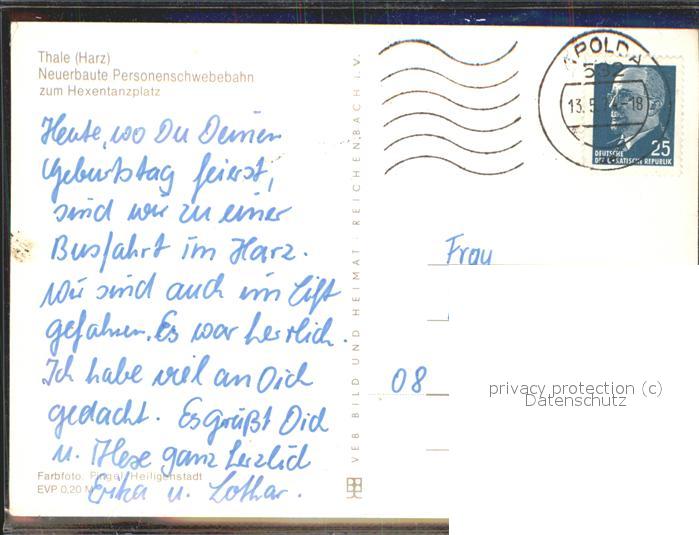 Thale (Harz)
Neuerbaute Personenschwebebahn
zum Hexentanzplatz
Heute, wo Du Deinen
Geburtstag feierst,
sind wir zu einer
Busfahrt im Harz.
Wir sind auch im Lift
gefahren. Es war herrlich.
Ich habe viel an Dich
gedacht. Es grüßt Dich
u. Ilese ganz herzlich
Erika u. Lothar.
Farbfoto: Pingel, Heiligenstadt
EVP 0,20 M
VEB BILD UND HEIMAT · REICHENBACH I. V.
APOLDA
532
13. 5. 74-18
25
DEUTSCHE
DEMOKRATISCHE REPUBLIK
Frau
08
privacy protection (c)
Datenschutz